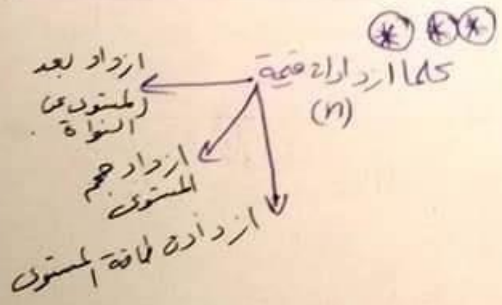 كلما ازدادت قيمة
(n)
ازداد بعد
المستوى عن
النواة.
ازداد حجم
المستوى
ازدادت طاقة المستوى